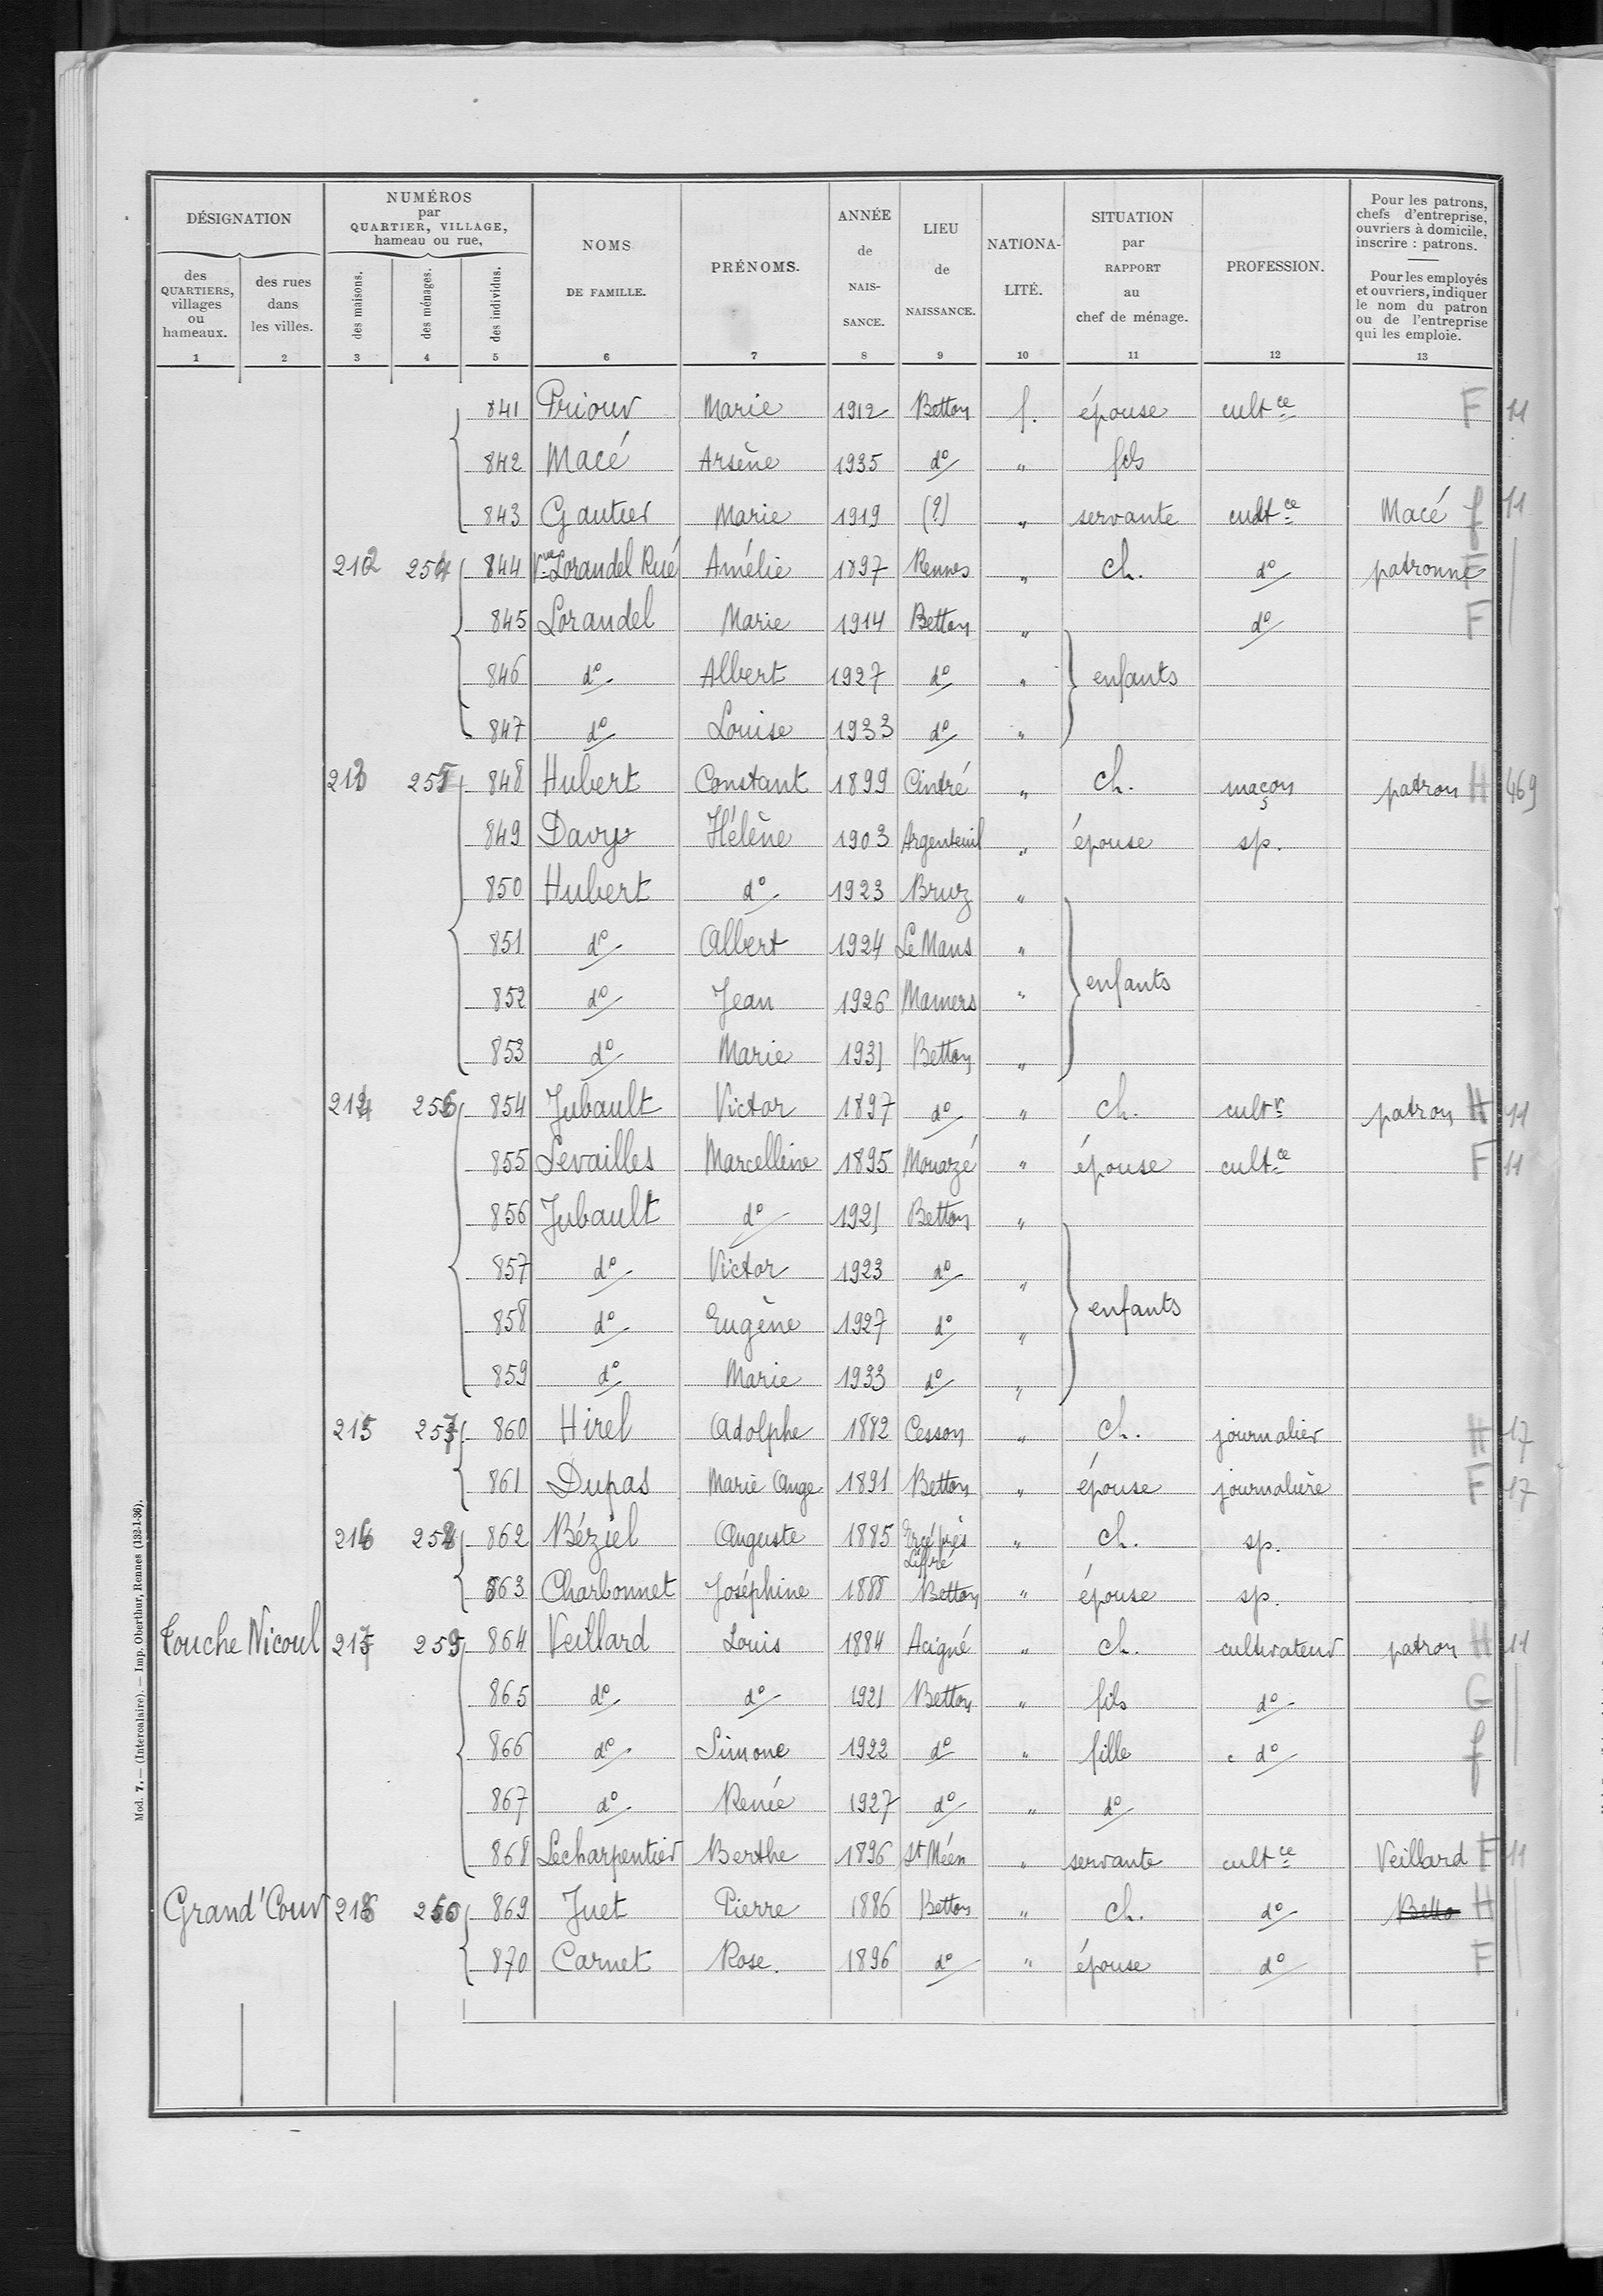 DÉSIGNATION
des QUARTIERS, villages ou hameaux.
des rues dans les villes.
NUMÉROS par QUARTIER, VILLAGE, hameau ou rue,
des maisons.
des ménages.
des individus.
NOMS DE FAMILLE.
PRÉNOMS.
ANNÉE de NAIS- SANCE.
LIEU de NAISSANCE.
NATIONA- LITÉ.
SITUATION par RAPPORT au chef de ménage.
PROFESSION.
Pour les patrons, chefs d'entreprise, ouvriers à domicile, inscrire : patrons.
Pour les employés et ouvriers, indiquer le nom du patron ou de l'entreprise qui les emploie.
1 2 3 4 5 6 7 8 9 10 11 12 13
841 Priour Marie 1912 Betton f. épouse cultce F 11
842 Macé Arsène 1935 do " fils
843 Gautier Marie 1919 (?) " servante cultce Macé f 11
212 254 844 Vve Lorandel Rué Amélie 1897 Rennes " ch. do patronne F
845 Lorandel Marie 1914 Betton " do F
846 do Albert 1927 do " enfants
847 do Louise 1933 do "
213 255 848 Hubert Constant 1899 Cintré " ch. maçon patron H 469
849 Davy Hélène 1903 Argenteuil " épouse sp.
850 Hubert do 1923 Bruz "
851 do Albert 1924 Le Mans "
852 do Jean 1926 Mamers " enfants
853 do Marie 1931 Betton "
214 256 854 Jubault Victor 1897 do " ch. cultr patron H 11
855 Levailles Marcelline 1895 Mouazé " épouse cultce F 11
856 Jubault do 1921 Betton "
857 do Victor 1923 do "
858 do Eugène 1927 do " enfants
859 do Marie 1933 do "
215 257 860 Hirel Adolphe 1882 Cesson " ch. journalier H 17
861 Dupas Marie Ange 1891 Betton " épouse journalière F 17
216 258 862 Béziel Auguste 1885 Ercé près Liffré " ch. sp.
863 Charbonnet Joséphine 1888 Betton " épouse sp.
Touche Nicoul 217 259 864 Veillard Louis 1884 Acigné " ch. cultivateur patron H 11
865 do do 1921 Betton " fils do G
866 do Simone 1922 do " fille do f
867 do Renée 1927 do " do
868 Lecharpentier Berthe 1896 St Méen " servante cultce Veillard F 11
Grand'Cour 218 260 869 Juet Pierre 1886 Betton " ch. do Betto H
870 Carnet Rose. 1896 do " épouse do F
Mod. 7. — (Intercalaire). — Imp. Oberthur, Rennes (132-1-36).